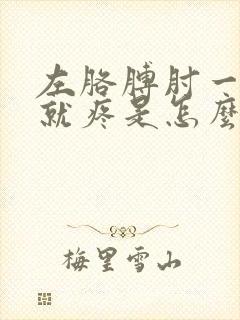 左胳膊肘一
就疼是怎麼
梅里雪山